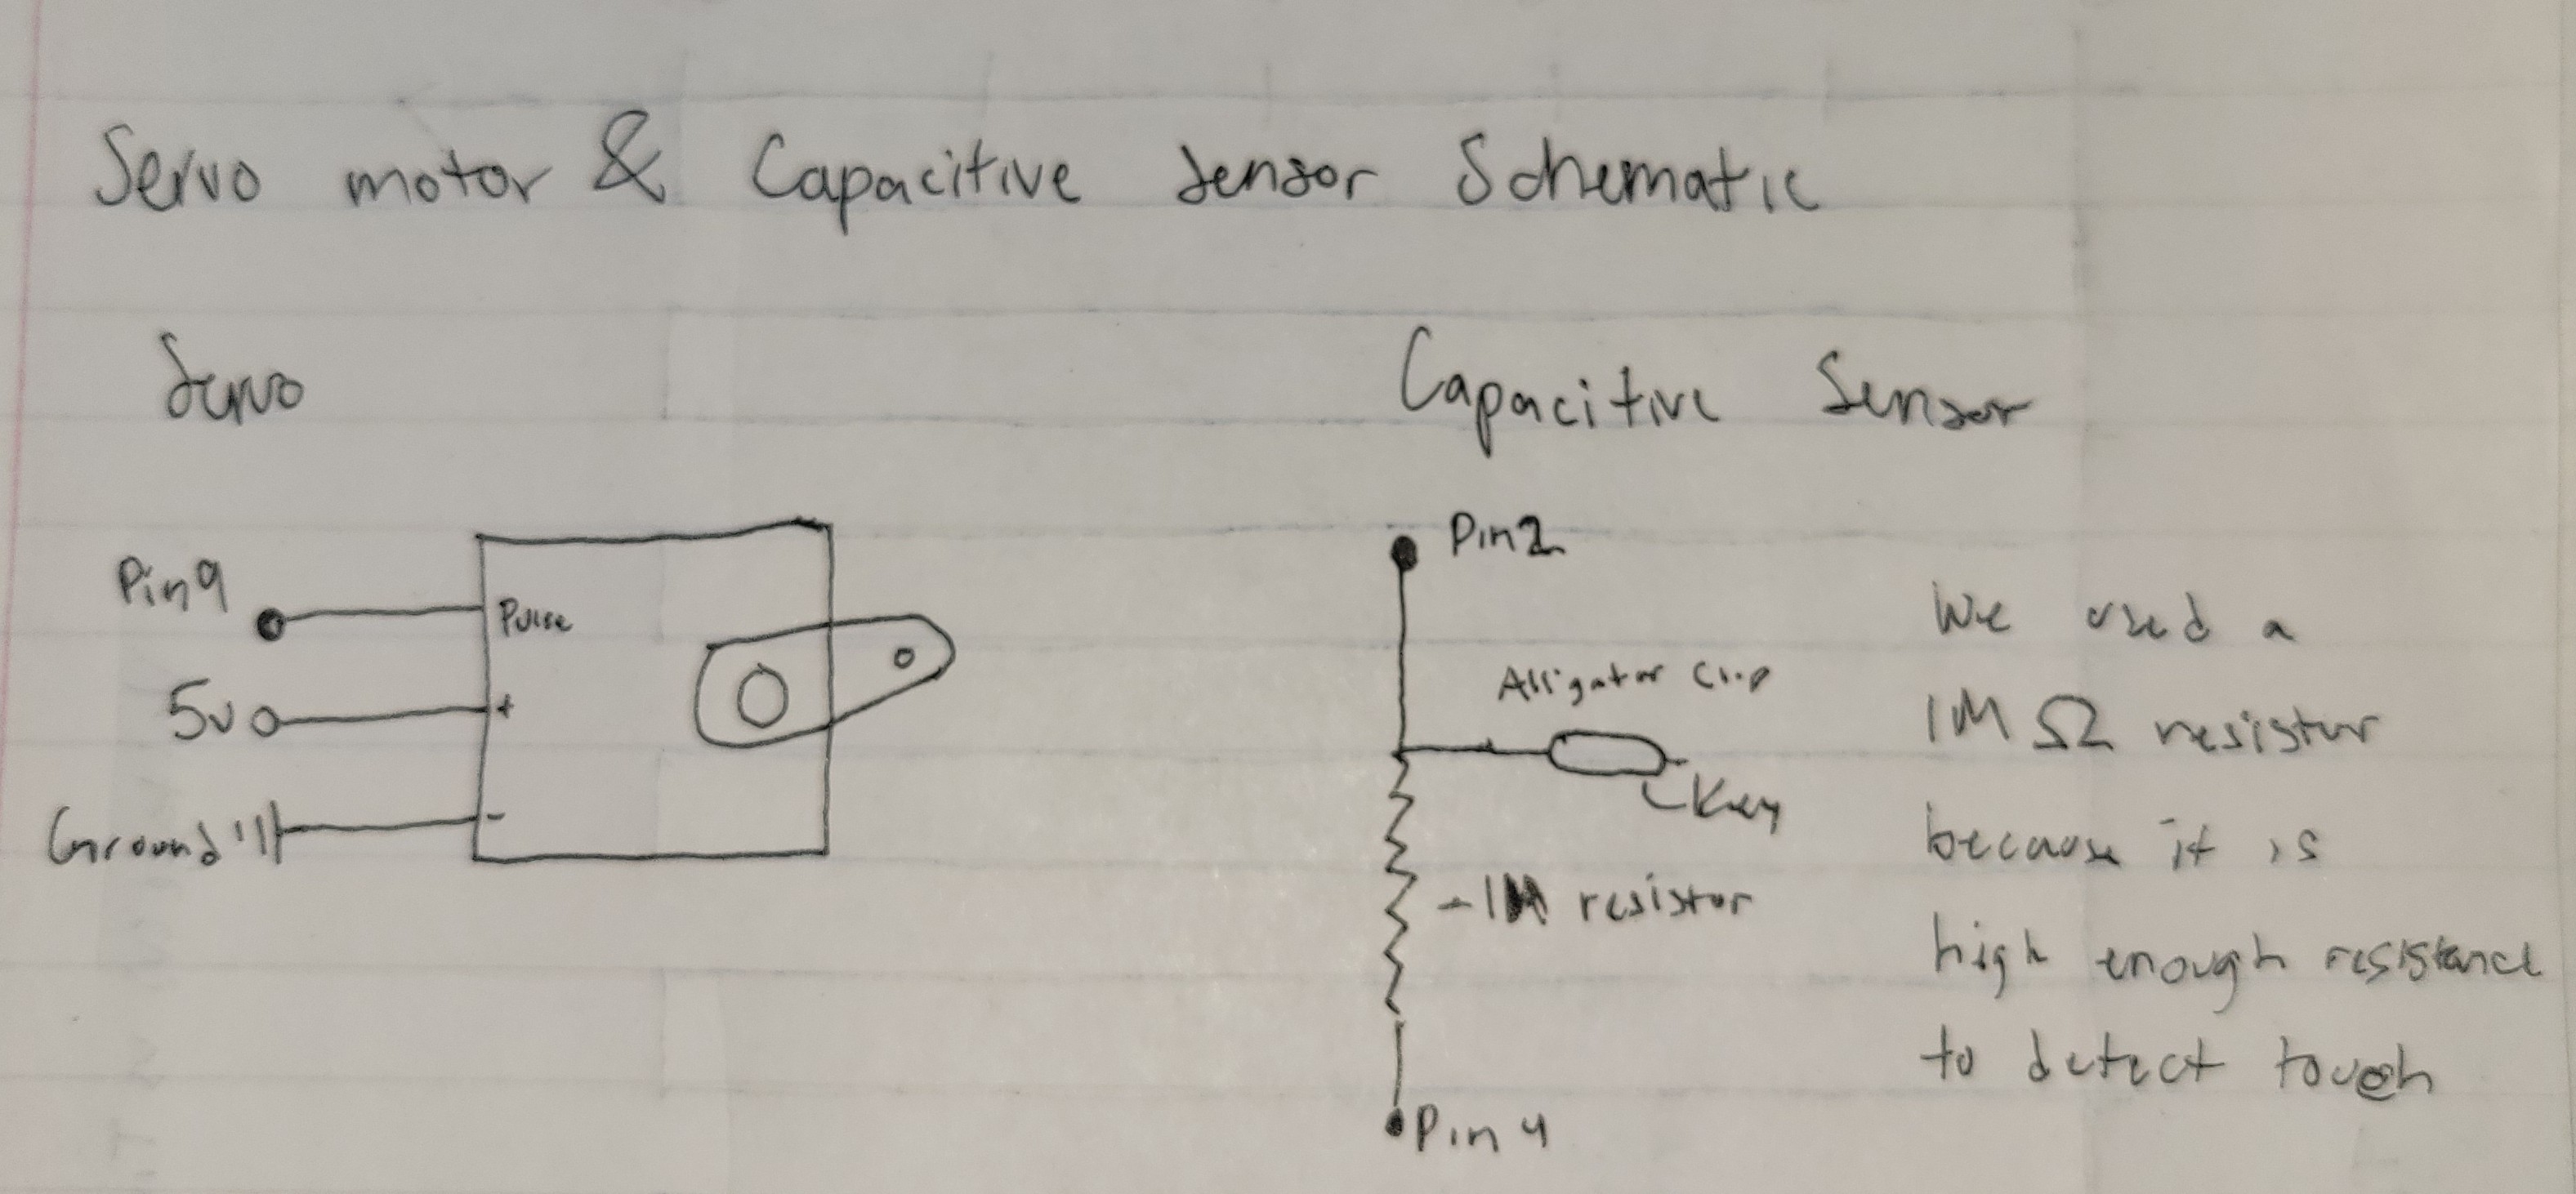 Servo motor & Capacitive Sensor Schematic
Servo
Capacitive Sensor
Pin 9
Pulse
5v
+
Ground
-
Pin 2
Alligator Clip
Key
1M resistor
Pin 4
We used a
1M Ω resistor
because it is
high enough resistance
to detect touch